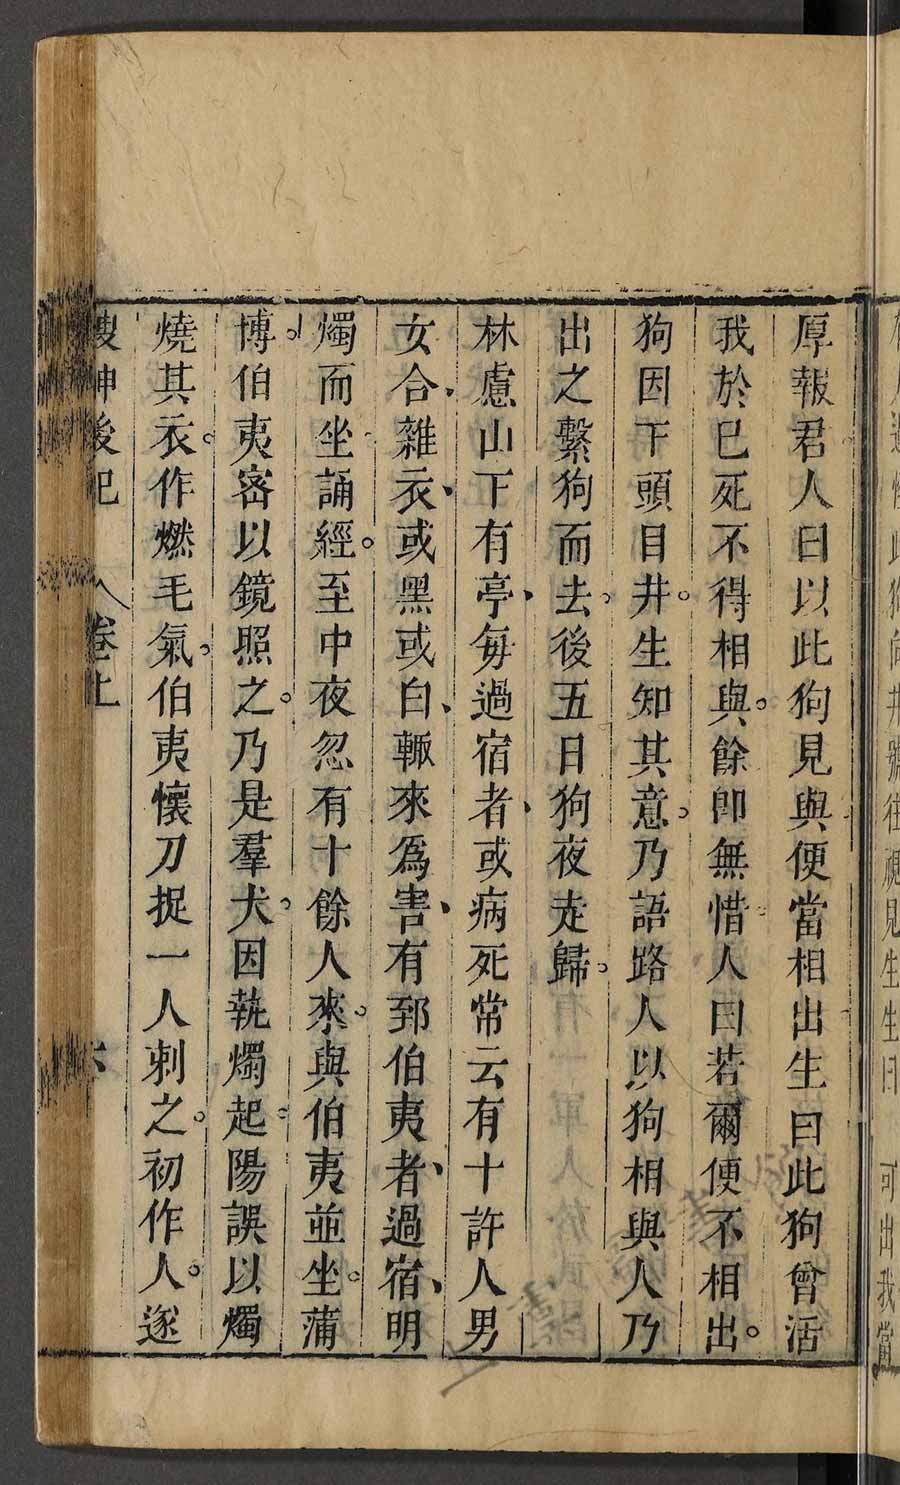 厚報君人曰以此狗見與便當相出生曰此狗曾活
我於已死不得相與。餘卽無惜人曰若爾便不相出。
狗因下頭目井。生知其意、乃語路人以狗相與人乃
出之繫狗而去、後五日狗夜走歸。
林慮山下有亭、每過宿者、或病死常云有十許人男
女合、雜衣、或黑或白、輙來爲害、有郅伯夷者、過宿、明
燭而坐誦經。至中夜忽有十餘人來。與伯夷並坐。蒲
博。伯夷密以鏡照之。乃是羣犬。因執燭起。陽誤以燭
燒其衣。作燃毛氣、伯夷懷刀捉一人刺之。初作人。遂
搜神後記 卷上 六